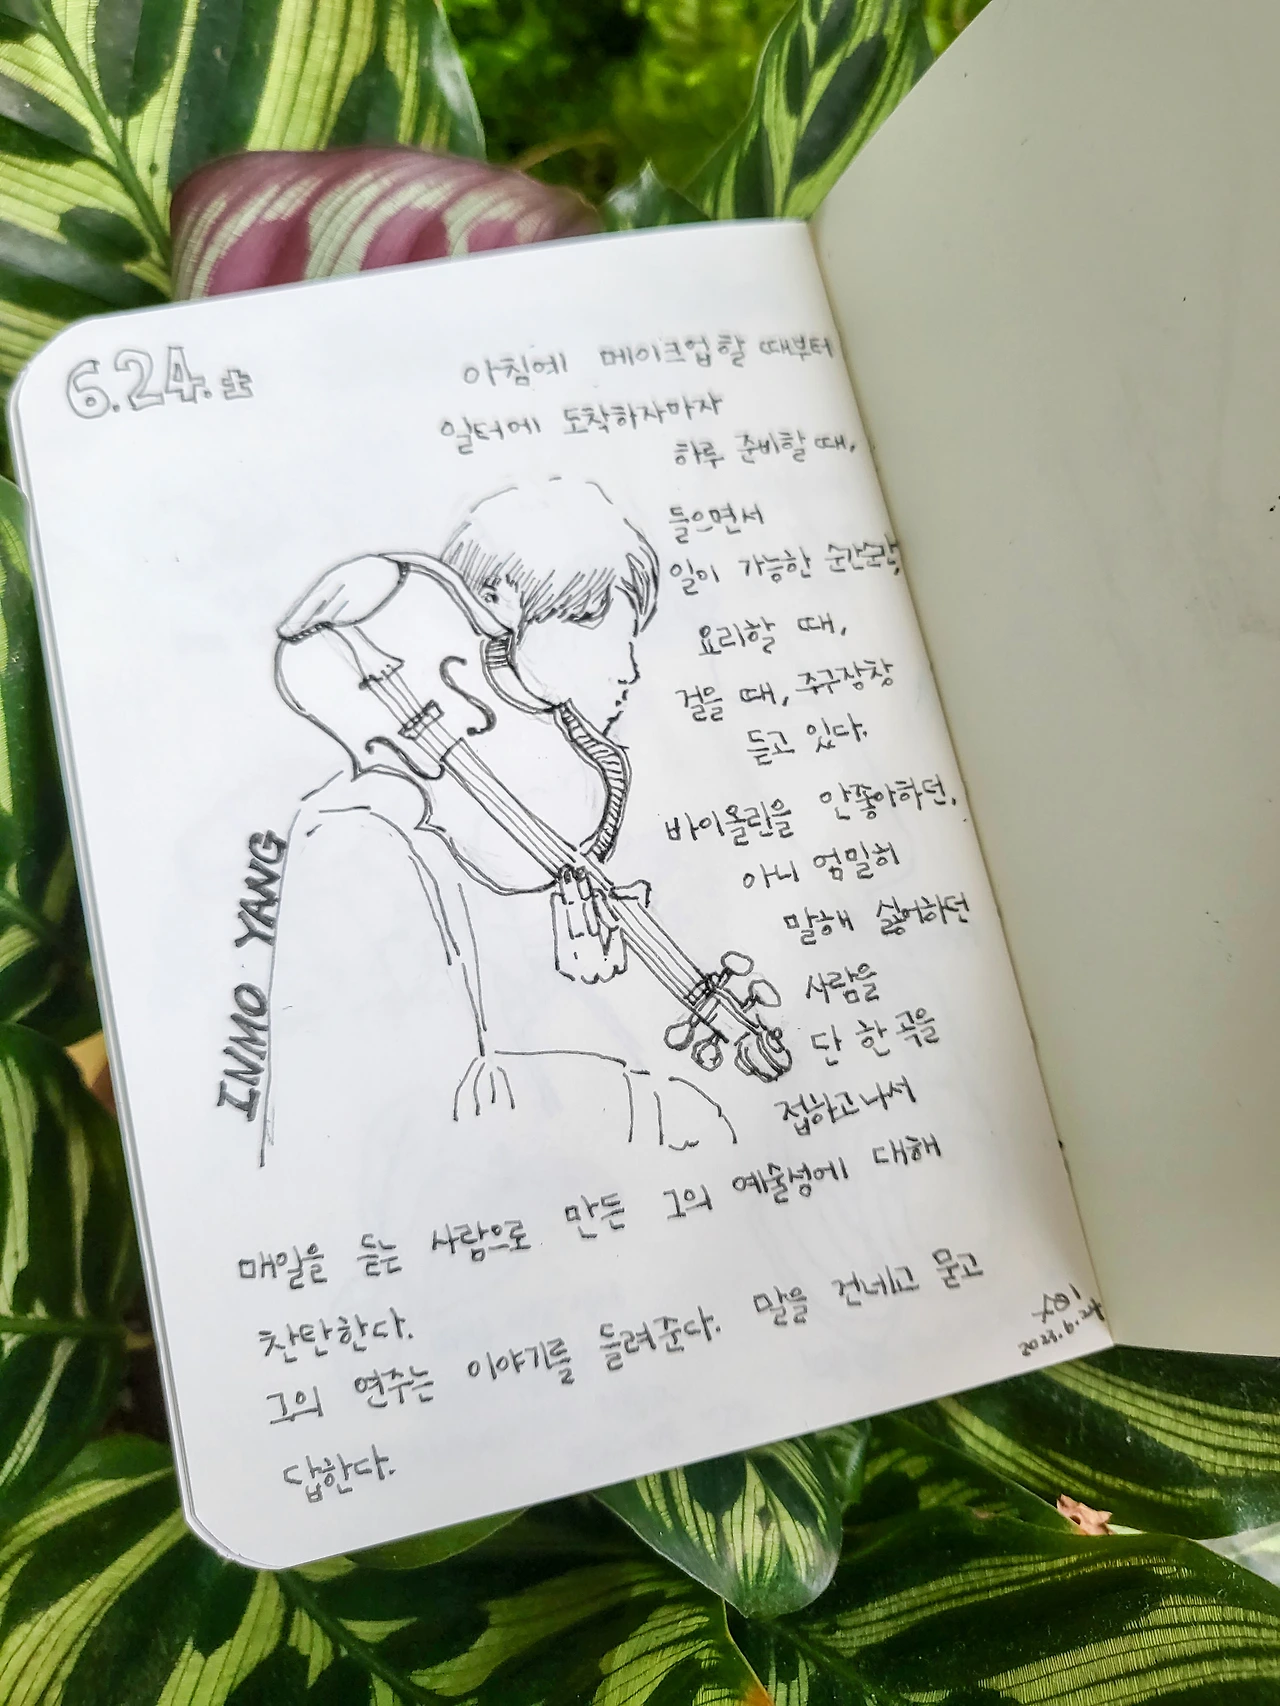 6.24.土
아침에 메이크업할 때부터
일터에 도착하자마자
하루 준비할 때,
들으면서
일이 가능한 순간순간,
요리할 때,
걸을 때, 주구장창
듣고 있다.
바이올린을 안좋아하던,
아니 엄밀히
말해 싫어하던
사람을
단 한 곡을
접하고나서
매일을 듣는 사람으로 만든 그의 예술성에 대해
찬탄한다.
그의 연주는 이야기를 들려준다. 말을 건네고 묻고
답한다.
INMO YANG
2023.6.24